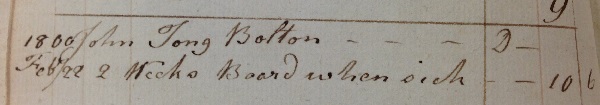 9
1800 John Tong Bolton - - - D -
Feb 22 2 Weeks Board when sick - - 10 6